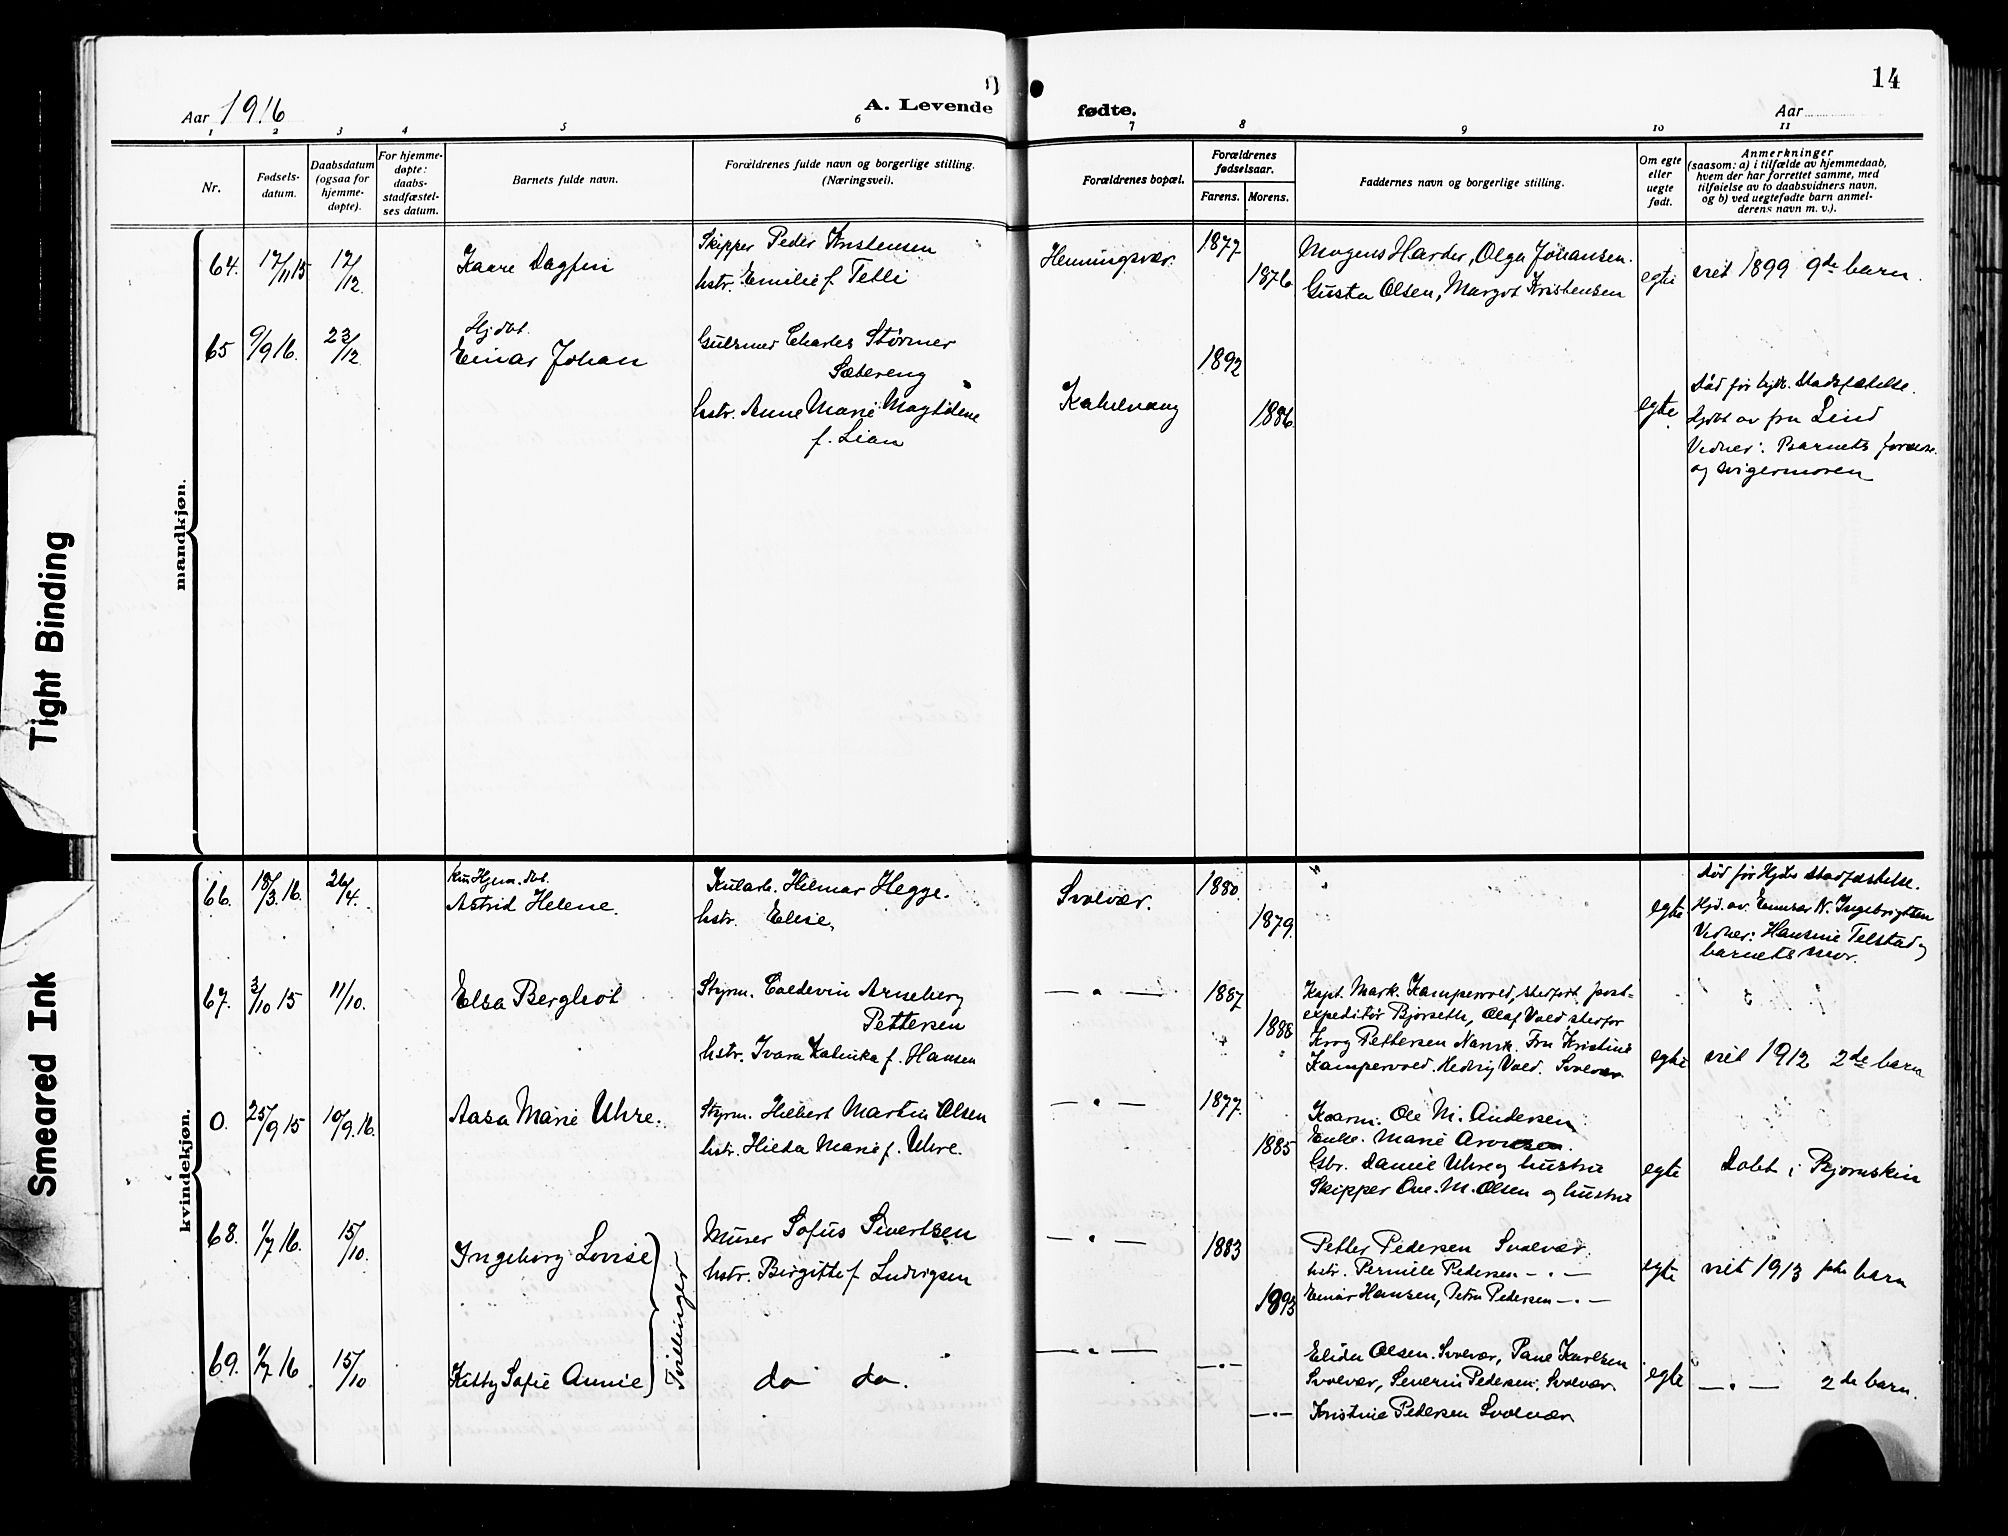 14
Aar 1916
A. Levende
fødte.
Aar
1 2 3 4 5 6 7 8 9 10 11
Nr.
Fødsels-
datum.
Daabsdatum
(ogsaa for
hjemme-
døpte).
For hjemme-
døpte:
daabs-
stadfæstel-
ses datum.
Barnets fulde navn.
Forældrenes fulde navn og borgerlige stilling.
(Næringsvei).
Forældrenes bopæl.
Forældrenes
fødselsaar.
Farens. Morens.
Faddernes navn og borgerlige stilling.
Om egte
eller
uegte
født.
Anmerkninger
(saasom: a) i tilfælde av hjemmedaab,
hvem der har forrettet samme, med
tilføielse av to daabsvidners navn,
og b) ved uegtefødte barn anmel-
derens navn m. v.).
mandkjøn.
64. 17/11 15 12/12. Kaare Dagfin
Skipper Peder Kristensen
hstr. Emilie f. Tetli
Henningsvær.
1877
1876
Mogens Harder, Olga Johansen.
Gusta Olsen, Margot Kristensen
egte
viet 1899 9de barn.
65 9/9 16. 23/12
Hjdbt.
Einar Johan
Gulsmed Charles Størmer
Sætereng
hstr. Anna Marie Magdalene
f. Lian
Kabelvaag
1892
1886
egte
Død før hjd. Stadfæstelse.
Hjdbt av fru Lind
Vidner: Barnets
og svigermoren
kvindekjøn.
66. 18/3 16. 26/4.
Kun Hjem. dbt.
Astrid Helene.
Kularb. Hilmar Hegge.
hstr. Elise.
Svolvær.
1880
1879.
egte
Død før Hjdbs stadfæstelse.
Hjd. av N. Ingebrigtsen
Vidner: Hansine Telstad og
barnets mor.
67. 3/10 15 11/10. Elsa Bergliot
Styrm. Coldevin Arneberg
Pettersen
hstr. Ivara Kalinka f. Hansen
— " —
1887
1888
Kapt. Mark. Kampevold, stedfort. post-
expeditør Bjørseth, Olaf Vold stedfor
Krog Pettersen Narvik. Fru Kristine
Kampevold. Hedvig Vold. Svolvær
egte
viet 1912 2de barn
0. 25/9 15 10/9. 16. Aasa Marie Uhre.
Styrm. Hilbert Martin Olsen
hstr. Hilda Marie f. Uhre.
— " —
1877.
1885
Kaarm. Ole M. Andersen
Enke. Marie
Gbr. Daniel Uhre og hustru
Skipper Ove. M. Olsen og hustru
egte
Døbt i Bjørnskin
68. 1/7 16. 15/10. Ingeborg Lovise
Murer Sofus Sivertsen
hstr. Birgitte f. Ludvigsen
— " —
1883
1893
Petter Pedersen Svolvær.
hstr. Pernille Pedersen — " —
Einar Hansen, Petra Pedersen — " —
egte
viet 1913 1ste barn
Tvillinger
69. 1/7 16 15/10 Kitty Sofie Annie
do do.
— " —
— " —
— " —
Elida Olsen. Svolvær, Paul Karlsen
Svolvær, Severin Pedersen, Svolvær
Kristine Pedersen Svolvær
egte
— " — 2de barn.
Tight Binding
Smeared Ink